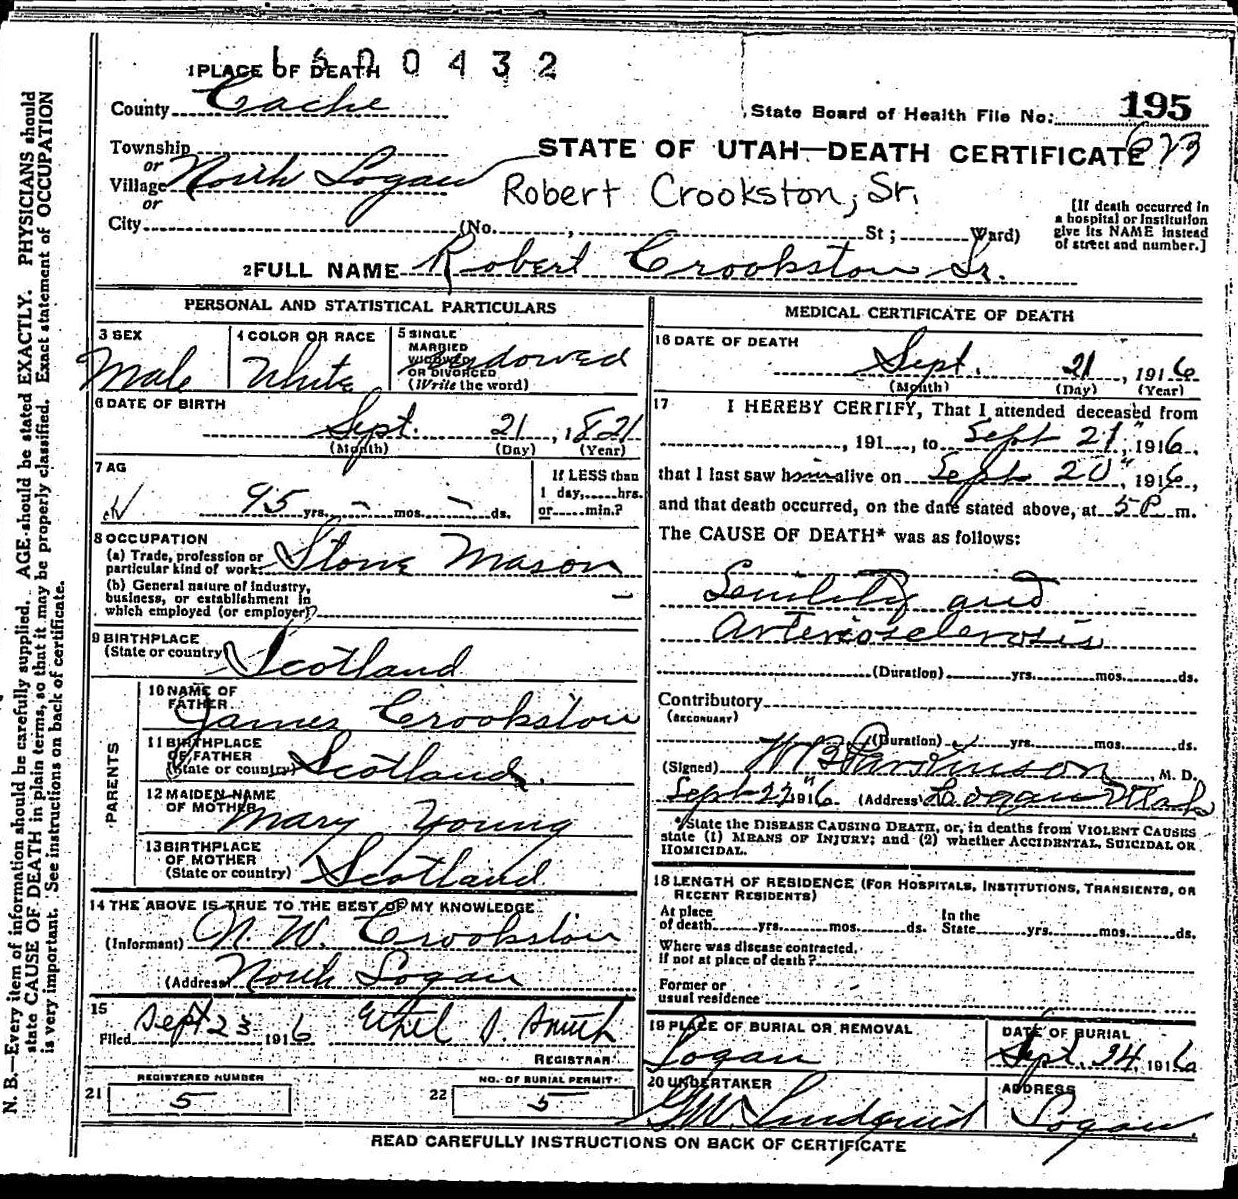 1 PLACE OF DEATH
0 4 3 2
County Cache
State Board of Health File No. 195
623
Township
or
Village North Logan
or
City (No. , St ; Ward)
STATE OF UTAH—DEATH CERTIFICATE
Robert Crookston, Sr.
[If death occurred in
a hospital or institution
give its NAME instead
of street and number.]
2 FULL NAME Robert Crookston Sr.
PERSONAL AND STATISTICAL PARTICULARS
3 SEX
Male
4 COLOR OR RACE
White
5 SINGLE
MARRIED
WIDOWED
OR DIVORCED
(Write the word)
Widowed
6 DATE OF BIRTH
Sept. 21, 1821
(Month) (Day) (Year)
7 AG
95 yrs. - mos. - ds.
If LESS than
1 day, hrs.
or min.?
8 OCCUPATION
(a) Trade, profession or
particular kind of work Stone Mason
(b) General nature of industry,
business, or establishment in
which employed (or employer)? -
9 BIRTHPLACE
(State or country) Scotland
PARENTS
10 NAME OF
FATHER
James Crookston
11 BIRTHPLACE
OF FATHER
(State or country) Scotland
12 MAIDEN NAME
OF MOTHER
Mary Young
13 BIRTHPLACE
OF MOTHER
(State or country) Scotland
14 THE ABOVE IS TRUE TO THE BEST OF MY KNOWLEDGE
(Informant) N. W. Crookston
(Address) North Logan
15
Filed Sept 23 1916 Ethel S. Smith
REGISTRAR
21 REGISTERED NUMBER
5
22 NO. OF BURIAL PERMIT
5
MEDICAL CERTIFICATE OF DEATH
16 DATE OF DEATH
Sept. 21, 1916
(Month) (Day) (Year)
17 I HEREBY CERTIFY, That I attended deceased from
, 191 , to Sept 21", 1916,
that I last saw him alive on Sept 20", 1916,
and that death occurred, on the date stated above, at 5 P m.
The CAUSE OF DEATH* was as follows:
Senility and
Arteriosclerosis
(Duration) yrs. mos. ds.
Contributory
(SECONDARY)
(Duration) yrs. mos. ds.
(Signed) W B Parkinson, M. D.
Sept 22" 1916 (Address) Logan Utah
*State the DISEASE CAUSING DEATH, or, in deaths from VIOLENT CAUSES
state (1) MEANS OF INJURY; and (2) whether ACCIDENTAL, SUICIDAL OR
HOMICIDAL.
18 LENGTH OF RESIDENCE (FOR HOSPITALS, INSTITUTIONS, TRANSIENTS, OR
RECENT RESIDENTS)
At place
of death yrs. mos. ds.
In the
State yrs. mos. ds.
Where was disease contracted,
If not at place of death?
Former or
usual residence
19 PLACE OF BURIAL OR REMOVAL
Logan
DATE OF BURIAL
Sept. 24, 1916
20 UNDERTAKER
G. W. Lindquist
ADDRESS
Logan
READ CAREFULLY INSTRUCTIONS ON BACK OF CERTIFICATE
N. B.—Every item of information should be carefully supplied. AGE should be stated EXACTLY. PHYSICIANS should
state CAUSE OF DEATH in plain terms, so that it may be properly classified. Exact statement of OCCUPATION
is very important. See instructions on back of certificate.